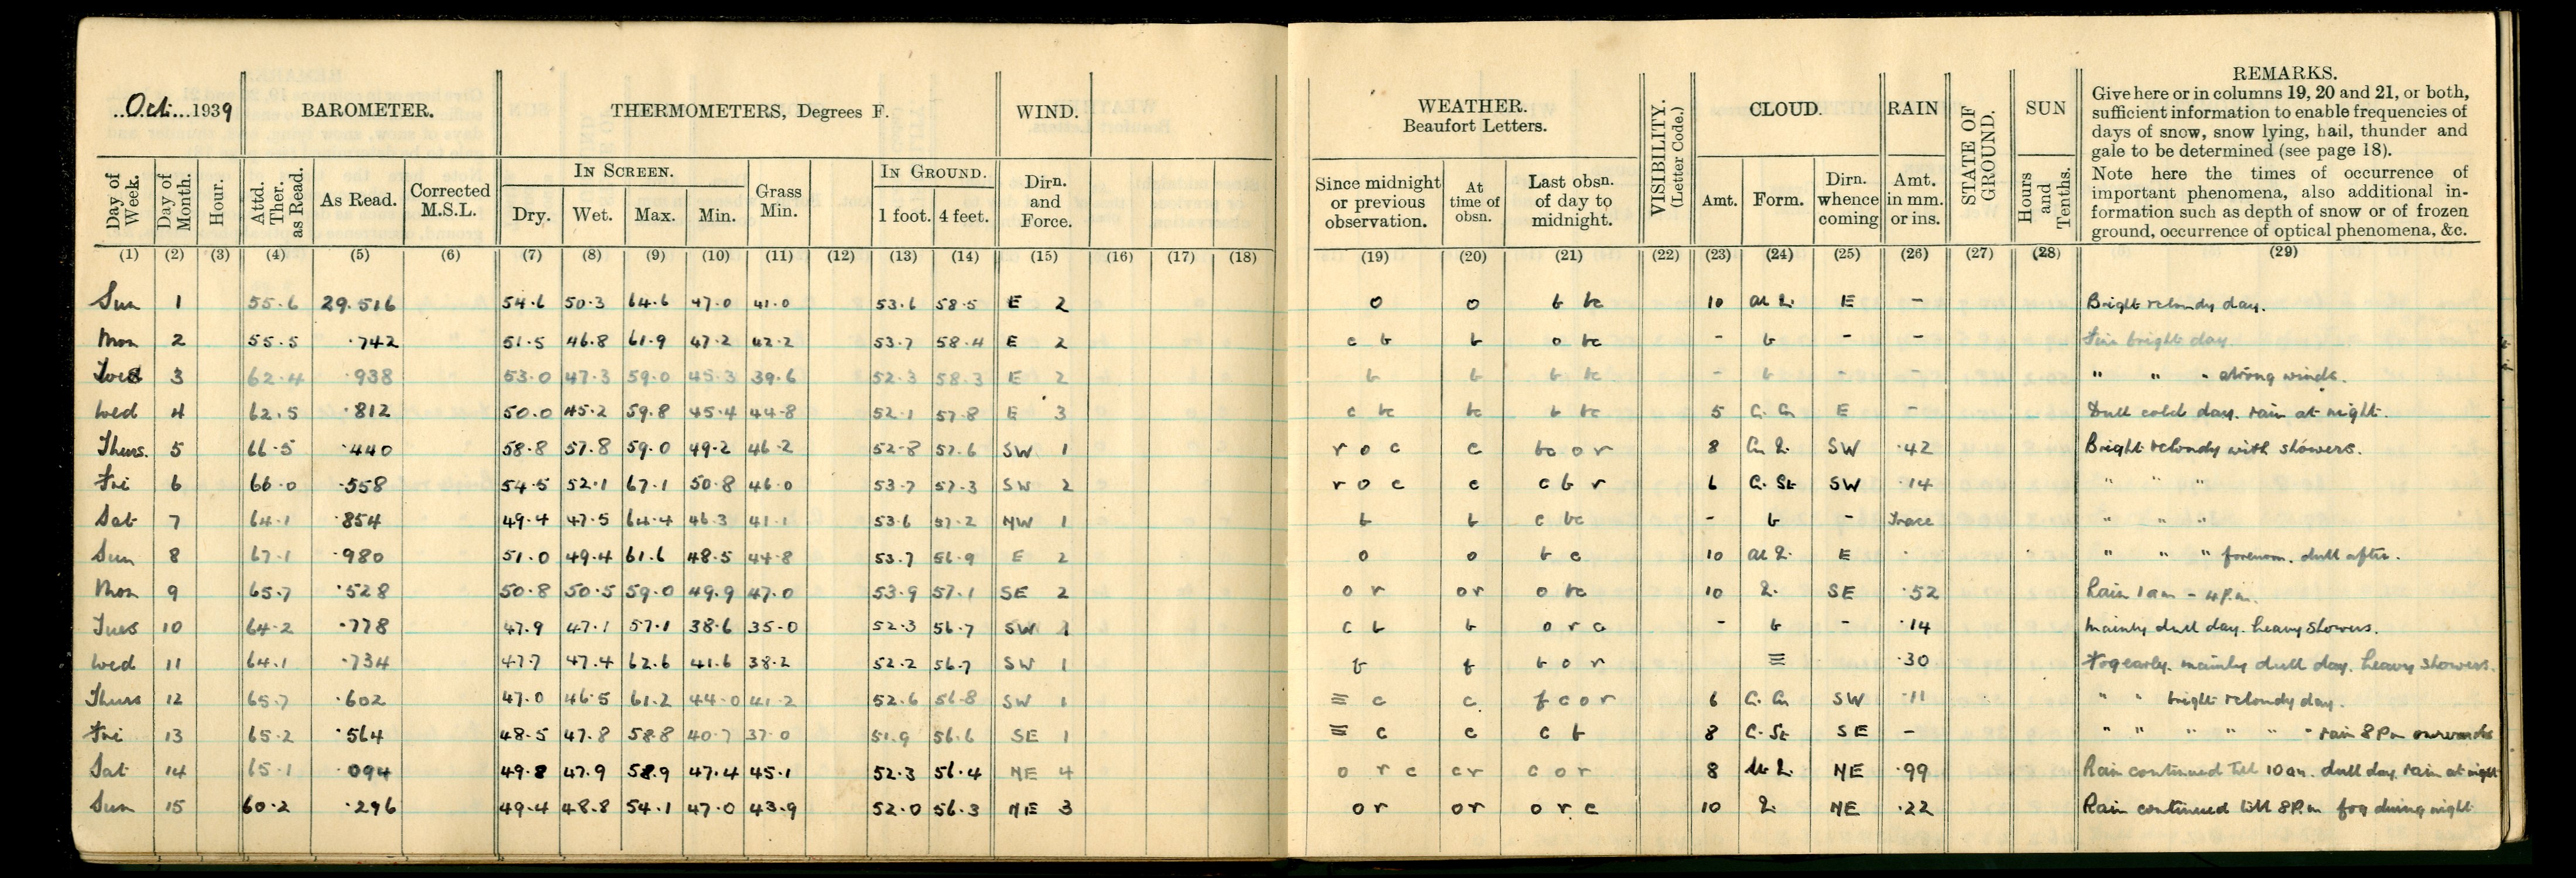 Oct. 1939 BAROMETER. THERMOMETERS, Degrees F. WIND. WEATHER. Beaufort Letters. VISIBILITY. (Letter Code.) CLOUD. RAIN STATE OF GROUND. SUN REMARKS.
Give here or in columns 19, 20 and 21, or both,
sufficient information to enable frequencies of
days of snow, snow lying, hail, thunder and
gale to be determined (see page 18).
Note here the times of occurrence of
important phenomena, also additional in-
formation such as depth of snow or of frozen
ground, occurrence of optical phenomena, &c.
IN SCREEN. IN GROUND.
Day of Week. Day of Month. Hour. Attd. Ther. as Read. As Read. Corrected M.S.L. Dry. Wet. Max. Min. Grass Min. 1 foot. 4 feet. Dirn. and Force. Since midnight or previous observation. At time of obsn. Last obsn. of day to midnight. Amt. Form. Dirn. whence coming Amt. in mm. or ins. Hours and Tenths.
(1) (2) (3) (4) (5) (6) (7) (8) (9) (10) (11) (12) (13) (14) (15) (16) (17) (18) (19) (20) (21) (22) (23) (24) (25) (26) (27) (28) (29)
Sun 1 55.6 29.516 54.6 50.3 64.6 47.0 41.0 53.6 58.5 E 2 o o b bc 10 E - Bright & cloudy day.
Mon 2 55.5 .742 51.5 46.8 61.9 47.2 42.2 53.7 58.4 E 2 c b b o bc - b - - Fine bright day
3 62.4 .938 53.0 47.3 59.0 45.3 39.6 52.3 58.3 E 2 b b b bc - b - - " " " strong winds.
Wed 4 62.5 .812 50.0 45.2 59.8 45.4 44.8 52.1 57.8 E 3 c bc bc b bc 5 E - Dull cold day. rain at night.
Thurs. 5 66.5 .440 58.8 57.8 59.0 49.2 46.2 52.8 57.6 SW 1 r o c c bc o r 8 SW .42 Bright & cloudy with showers.
Fri 6 66.0 .558 54.5 52.1 67.1 50.8 46.0 53.7 57.3 SW 2 r o c c c b r 6 C. St SW .14 " " "
Sat 7 64.1 .854 49.4 47.5 64.4 46.3 41.1 53.6 57.2 NW 1 b b c bc - b - Trace " " "
Sun 8 67.1 .980 51.0 49.4 61.6 48.5 44.8 53.7 56.9 E 2 o o b c 10 E " " " forenoon. dull after.
Mon 9 65.7 .528 50.8 50.5 59.0 49.9 47.0 53.9 57.1 SE 2 o r o r o bc 10 SE .52 Rain 1 am - 4 P.m.
Tues 10 64.2 .778 47.9 47.1 57.1 38.6 35.0 52.3 56.7 SW 1 c b b o r c - b - .14 Mainly dull day. heavy showers.
Wed 11 64.1 .734 47.7 47.4 62.6 41.6 38.2 52.2 56.7 SW 1 f f b o r ≡ .30 Fog early. mainly dull day. heavy showers.
Thurs 12 65.7 .602 47.0 46.5 61.2 44.0 41.2 52.6 56.8 SW 1 ≡ c c f c o r 6 SW .11 " " bright & cloudy day.
Fri 13 65.2 .564 48.5 47.8 58.8 40.7 37.0 51.9 56.6 SE 1 ≡ c c c b 8 C. St SE - " " " " " " rain 8 Pm onwards
Sat 14 65.1 .094 49.8 47.9 58.9 47.4 45.1 52.3 56.4 NE 4 o r c c r c o r 8 NE .99 Rain continued till 10 am. dull day. rain at night
Sun 15 60.2 .296 49.4 48.8 54.1 47.0 43.9 52.0 56.3 NE 3 o r o r o r c 10 NE .22 Rain continued till 8 P.m fog during night